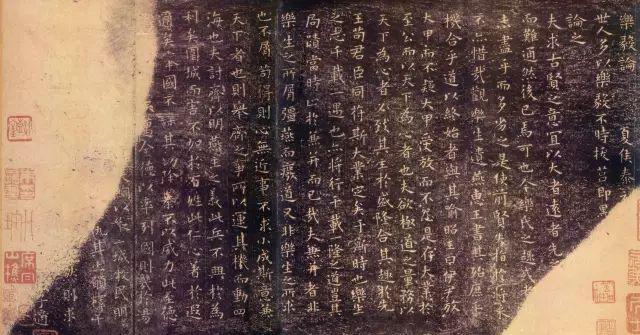 樂毅論
夏侯泰
世人多以樂毅不時拔莒即墨
論之
夫求古賢之意宜以大者遠者先
而難通然後已焉可也今樂氏之趣或者
未盡乎而多劣之是使前賢失指於將來
不亦惜哉觀樂生遺燕惠王書其殆庶乎
機合乎道以終始者與其喻昭王曰伊尹放
大甲而不疑大甲受放而不怨是存大業於
至公而以天下為心者也夫欲極道之量務以
天下為心者必致其主於盛隆合其趣於先
王苟君臣同符斯大業定矣于斯時也樂生
之志千載一遇也亦將行千載一隆之道豈其
局蹟當時止於兼并而已哉夫兼并者非
樂生之所屑彊燕而廢道又非樂生之所求
也不屑苟得則心無近事不求小成斯意兼
天下者也則舉齊之事所以運其機而動四
海也夫討齊以明燕主之義此兵不興於為
利矣圍城而害不加於百姓此仁心著於遐
邇矣舉國不謀其功除暴不以威力此至德
全德以率列國則幾於湯